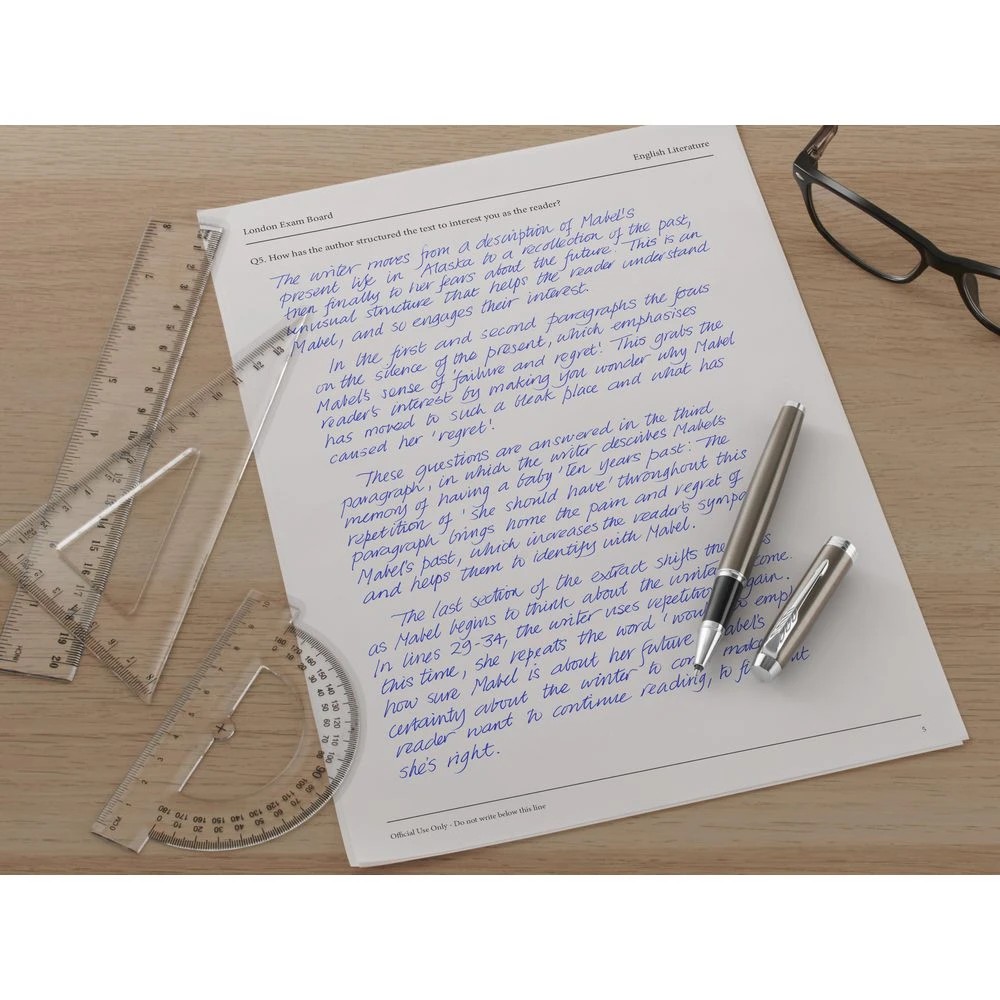 English Literature
London Exam Board
Q5. How has the author structured the text to interest you as the reader?
The writer moves from a description of Mabel's
present life in Alaska to a recollection of the past,
then finally to her fears about the future. This is an
unusual structure that helps the reader understand
Mabel, and so engages their interest.
In the first and second paragraphs the focus
on the silence of the present, which emphasises
Mabel's sense of 'failure and regret'. This grabs the
reader's interest by making you wonder why Mabel
has moved to such a bleak place and what has
caused her 'regret'.
These questions are answered in the third
paragraph, in which the writer describes Mabel's
memory of having a baby 'ten years past'. The
repetition of 'she should have' throughout this
paragraph brings home the pain and regret of
Mabel's past, which increases the reader's
and helps them to identify with Mabel.
The last section of the extract shifts
as Mabel begins to think about the
In lines 29-34, the writer uses
this time, she repeats the word
how sure Mabel is about her future
certainty about the winter to
reader want to continue reading, to
she's right.
5
Official Use Only - Do not write below this line
8
7
6
5
4
19
20
INCH
13
12
11
10
14
15
16
17
180
170
160
150
140
130
120
110
100
90
80
70
60
50
40
30
20
10
0